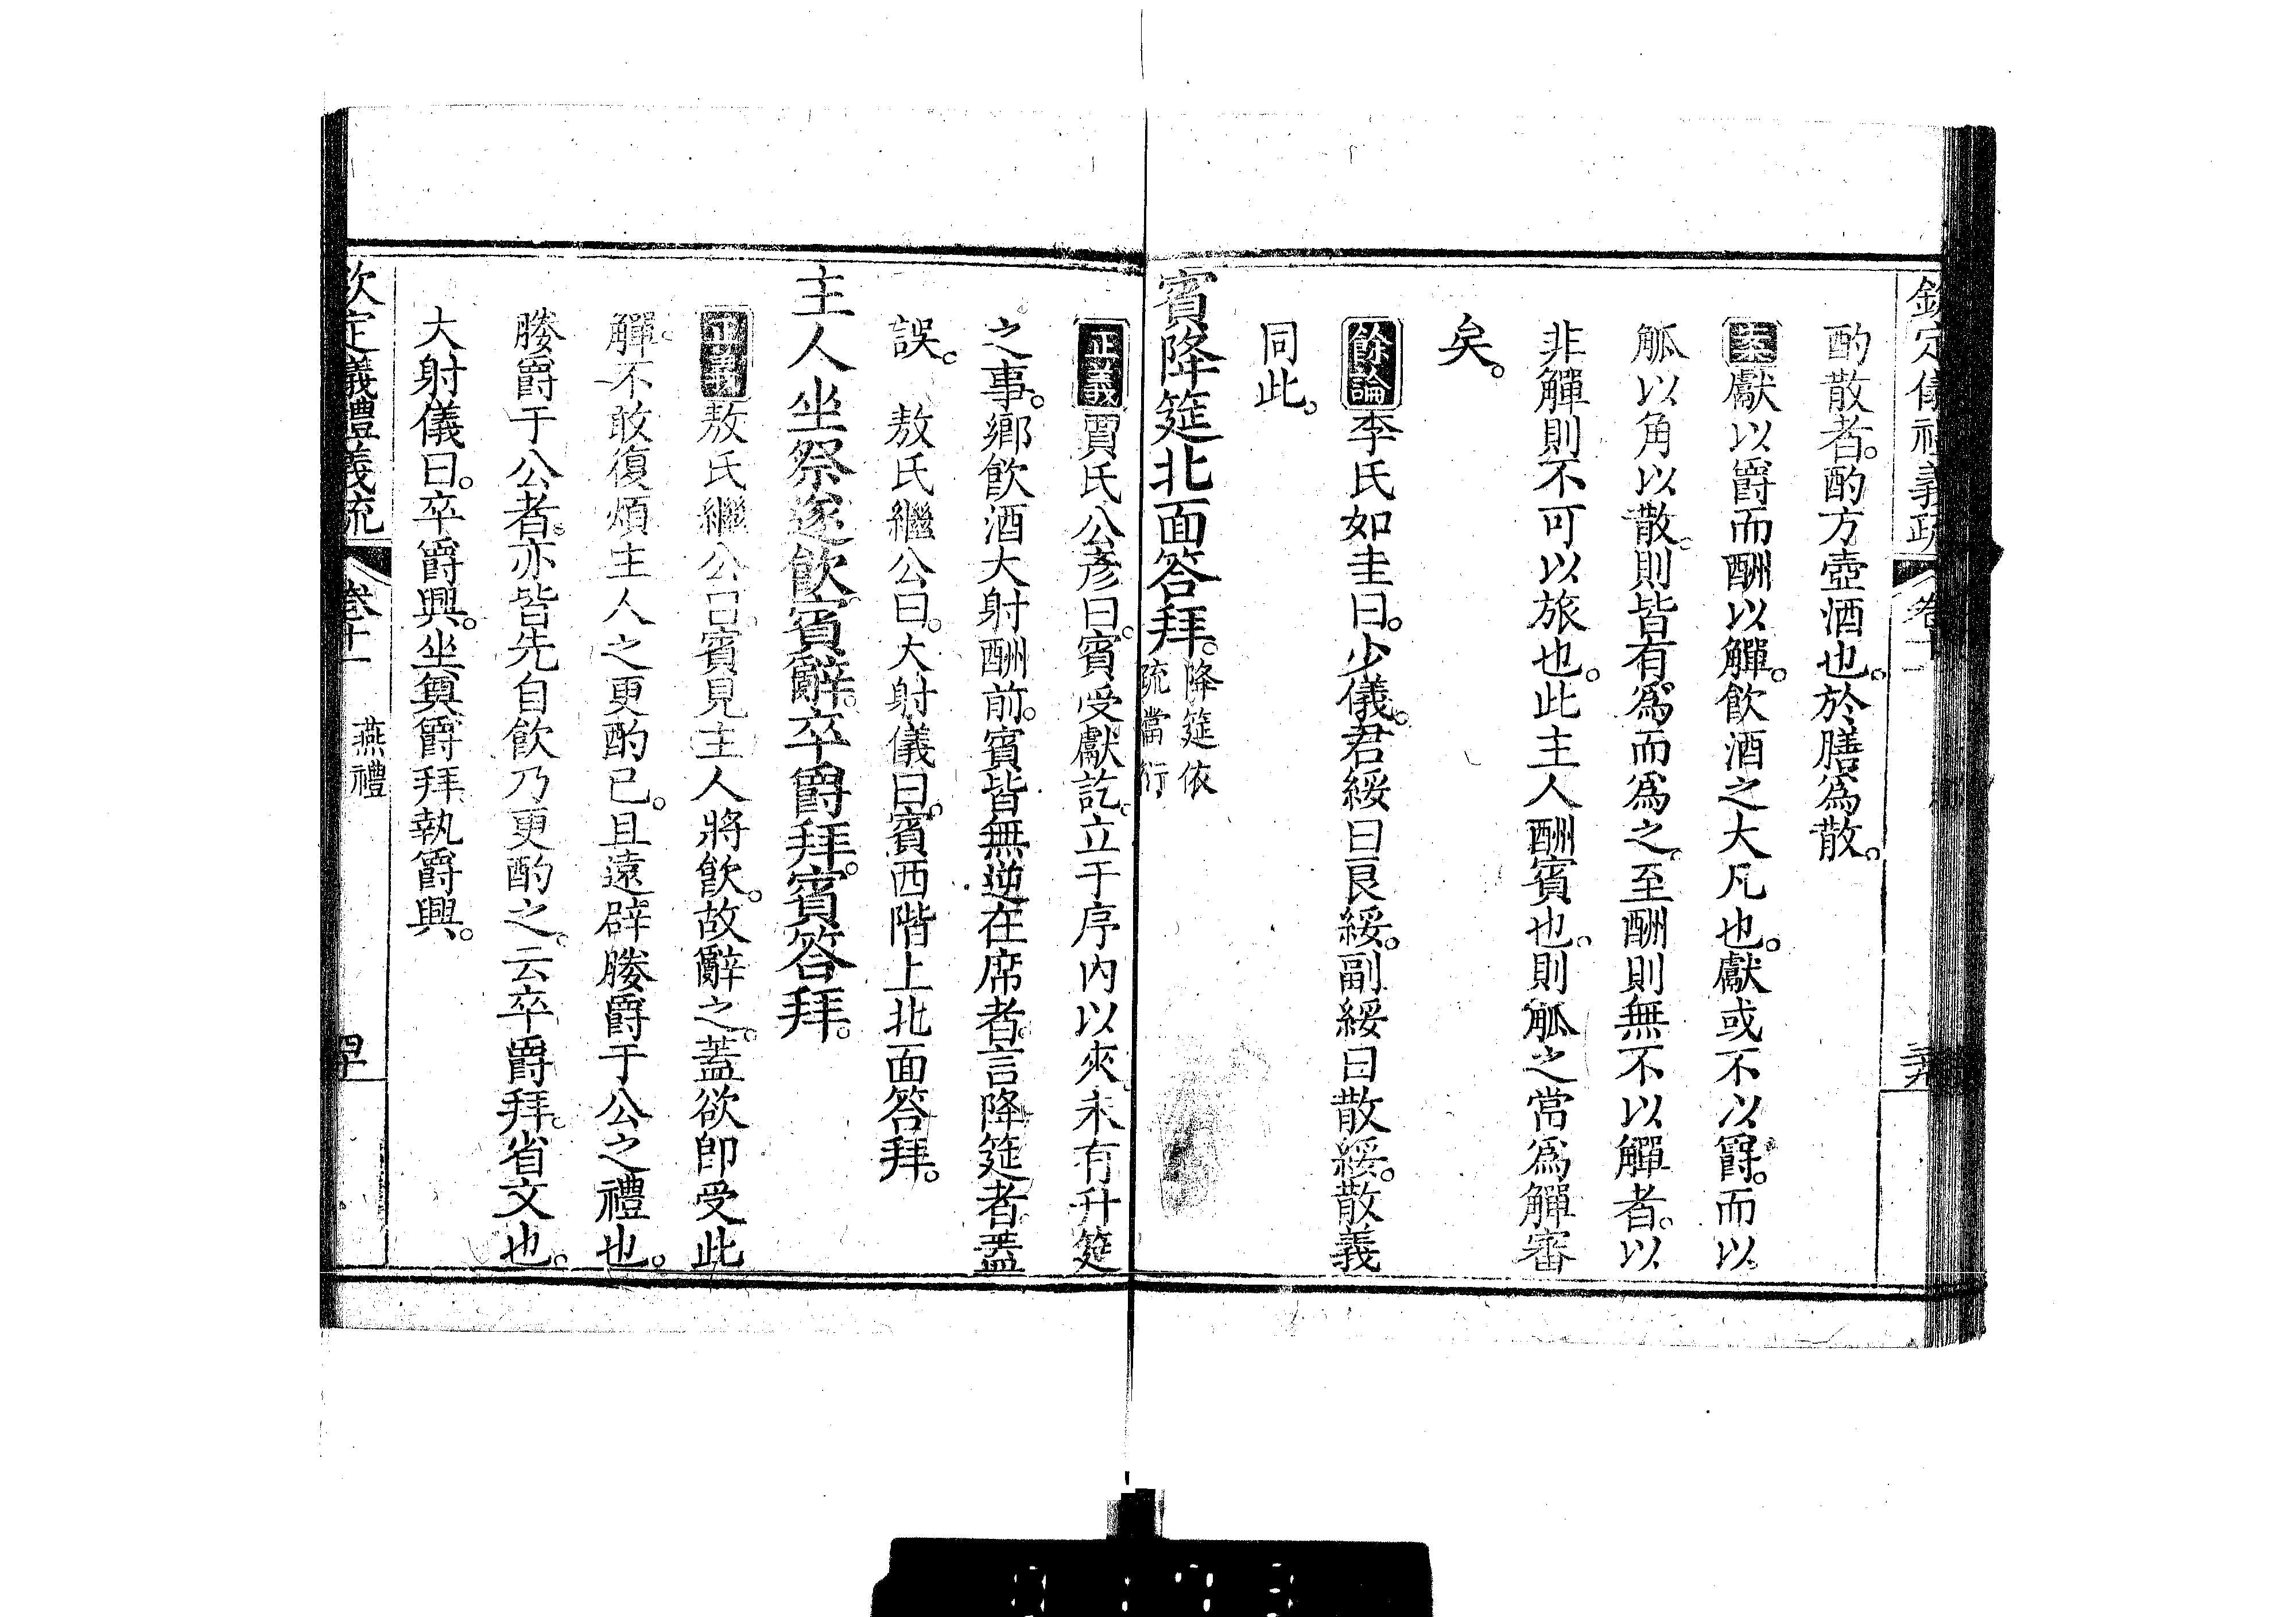 欽定儀禮義疏 卷十一
酌散者。酌方壺酒也。於膳爲散。
案獻以爵而酬以觶。飲酒之大凡也。獻或不以爵。而以
觚以角以散。則皆有爲而爲之。至酬則無不以觶者。以
非觶則不可以旅也。此主人酬賓也。則觚之當爲觶審
矣。
餘論李氏如圭曰。少儀。君綏曰良綏。副綏曰散綏。散義
同此。
賓降筵北面答拜。降筵依
疏當衍
正義賈氏公彥曰。賓受獻訖。立于序內以來。未有升筵
之事。鄉飲酒大射酬前。賓皆無逆在席者。言降筵者。蓋
誤。 敖氏繼公曰。大射儀曰。賓西階上北面答拜。
主人坐祭遂飲。賓辭。卒爵拜。賓答拜。
正義敖氏繼公曰。賓見主人將飲。故辭之。蓋欲卽受此
觶。不敢復煩主人之更酌已。且遠辟媵爵于公之禮也。
媵爵于公者。亦皆先自飲乃更酌之。云卒爵拜。省文也。
大射儀曰。卒爵興。坐奠爵拜。執爵興。
欽定儀禮義疏 卷十一 燕禮 四十